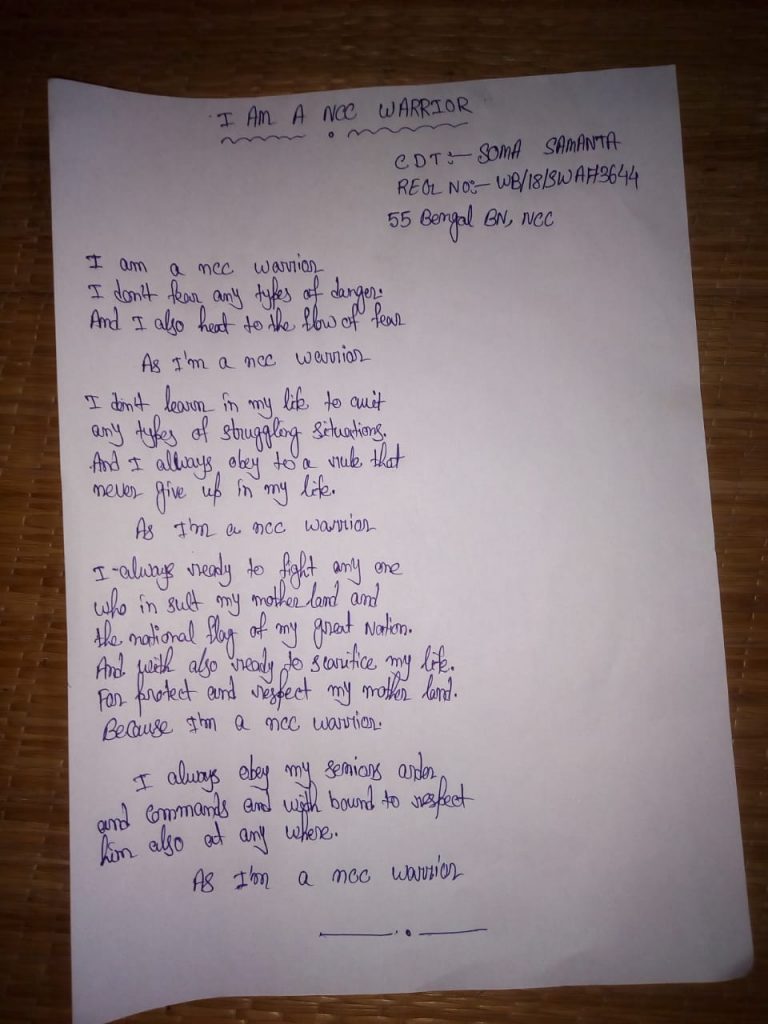 I AM A NCC WARRIOR
CDT:- SOMA SAMANTA
REGL NO:- WB/18/SWA/13644
55 Bengal BN, NCC
I am a ncc warrior
I don't fear any types of danger.
And I also heat to the flow of fear
As I'm a ncc warrior
I don't learn in my life to quit
any types of struggling situations.
And I allways obey to a rule that
never give up in my life.
As I'm a ncc warrior
I-always ready to fight any one
who in sult my mother land and
the national flag of my great Nation.
And with also ready to scarifice my life.
For protect and respect my mother land.
Because I'm a ncc warrior.
I always obey my seniors order
and commands and with bound to respect
him also at any where.
As I'm a ncc warrior